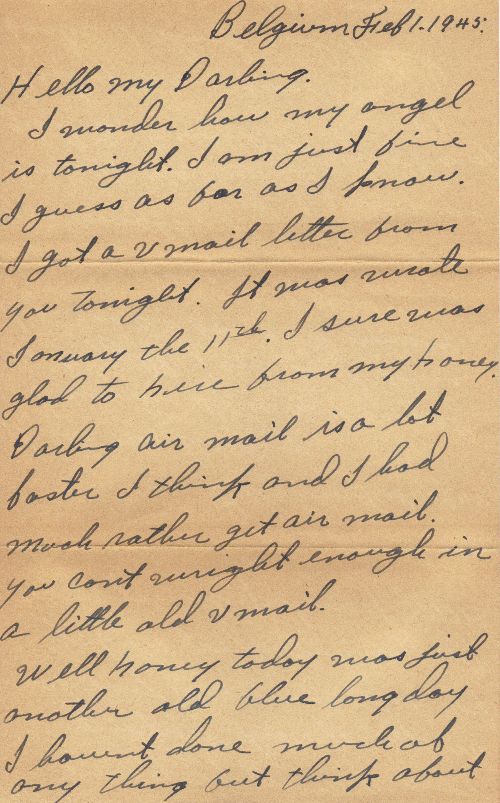 Belgium Feb 1. 1945.
Hello my Darling.
I wonder how my angel
is tonight. I am just fine
I guess as far as I know.
I got a v mail letter from
you tonight. It was wrote
January the 11th. I sure was
glad to hire from my honey.
Darling air mail is a lot
faster I think and I had
much rather get air mail.
you cant wright enough in
a little old v mail.
Well honey today was just
another old blue long day
I havent done much of
any thing but think about